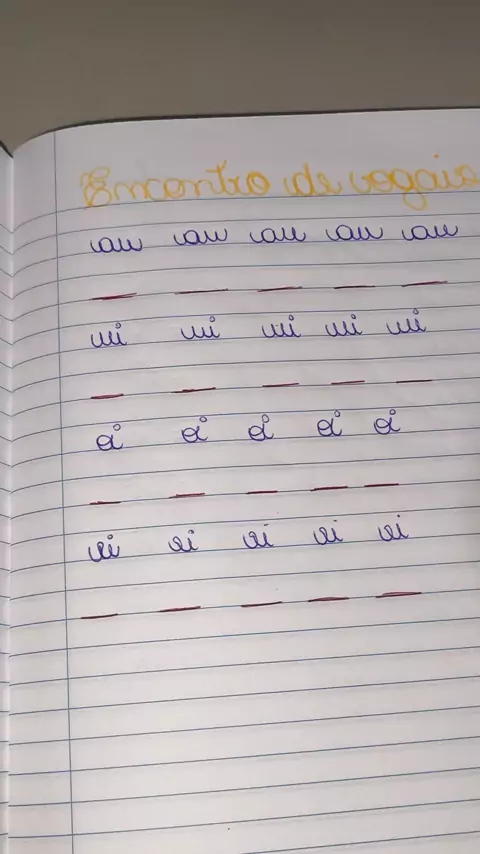 Encontro de vogais
au au au au au
ui ui ui ui ui
oi oi oi oi oi
ei ei ei ei ei